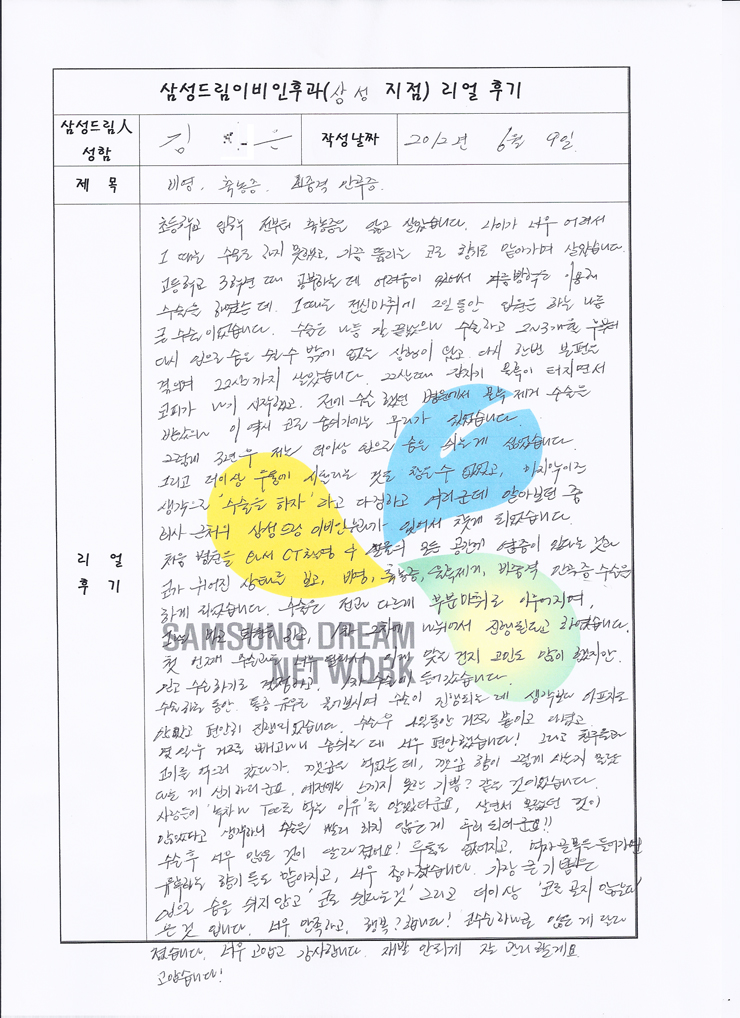 삼성드림이비인후과(삼성 지점) 리얼 후기
삼성드림人 성함
김 은
작성날짜
2012년 6월 9일
제 목
비염, 축농증, 비중격 만곡증.
리 얼 후 기
초등학교 입학 전부터 축농증을 앓고 살았습니다. 나이가 너무 어려서
그 때는 수술도 하지 못했고, 가끔 뚫리는 코로 향기를 맡아가며 살았습니다.
고등학교 3학년 때 공부하는데 어려움이 있어서 겨울방학을 이용해
수술을 하였는데. 그때는 전신마취에 2일동안 입원을 하는 나름
큰 수술이었습니다. 수술은 나름 잘 끝났으나 수술하고 2~3개월 후부터
다시 입으로 숨을 쉴 수 밖에 없는 상황이 왔고. 다시 한번 불편을
겪으며 22살까지 살았습니다. 22살때 갑자기 물혹이 터지면서
코피가 나기 시작했고. 전에 수술 했던 병원에서 물혹 제거 수술을
받았으나 이 역시 코로 숨쉬기에는 무리가 있었습니다.
그렇게 3년 후 저는 더이상 입으로 숨을 쉬는게 싫었습니다.
그리고 더이상 후유에 시달리는 것도 참을 수 없었고, 마지막이즈
생각으로 '수술을 하자'라고 다짐하고 여러군데 알아보던 중
회사 근처의 삼성드림 이비인후과가 있어서 찾게 되었습니다.
처음 병원을 와서 CT촬영 후 얼굴의 모든 공간에 염증이 있다는 것과
코가 휘어진 상태를 보고, 비염, 축농증, 물혹제거, 비중격 만곡증 수술을
하게 되었습니다. 수술은 전과 다르게 부분마취로 이루어지며,
당일 바로 퇴원하고, 1차 2차에 나뉘어서 진행된다고 하였습니다.
첫 번째 수술과는 너무 달라서 이게 맞는건지 고민도 많이 했지만.
믿고 수술하기로 결정하고. 1차 수술이 들어갔습니다.
수술하는 동안. 통증 유무를 물어보시며 수술이 진행되는데 생각보다 아프지도
않았고 편안히 진행되었습니다. 수술 후 4일동안 거즈를 붙이고 다녔고.
몇일 후 거즈를 빼고나니 숨쉬는데 너무 편안했습니다! 그리고 친구들과
고기를 먹으러 갔다가. 깻잎을 먹었는데, 깻잎 향이 그렇게 나는지 몰랐
다는 게 신기하더군요. 예전에는 느끼지 못한 기쁨? 같은 것이었습니다.
사람들이 '녹차나 Tea를 먹는 이유'를 알겠더군요, 살면서 몰랐던 것이
많았다고 생각하니 수술을 빨리 하지 않은게 후회 되더군요!!
수술 후 너무 많은 것이 달라졌어요! 두통도 없어지고, 여자 골목을 들어가면
유혹하는 향기들도 맡아지고, 너무 좋아졌습니다. 가장 큰 기쁨은
입으로 숨을 쉬지 않고 '코로 쉰다는 것' 그리고 더이상 '코를 골지 않는다'
는 것 입니다. 너무 만족하고, 행복?합니다! 코수술 하나로 많은 게 달라
졌습니다. 너무 고맙고 감사합니다. 재발 안하게 잘 관리할게요
고맙습니다!
SAMSUNG DREAM
NETWORK